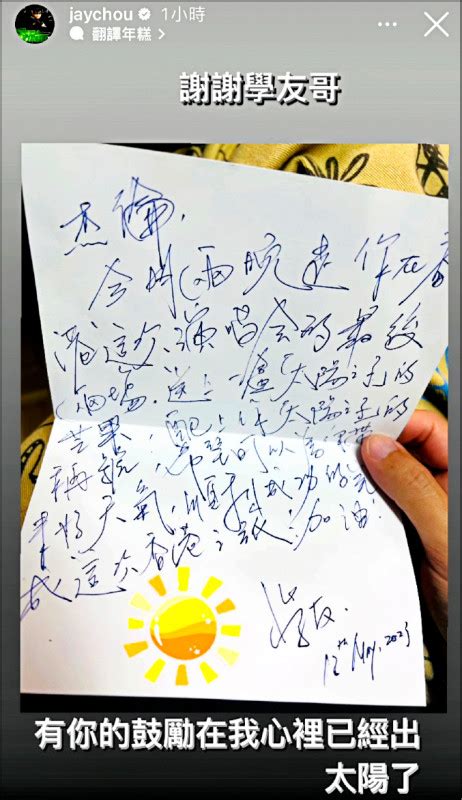 jaychou 1小時
翻譯年糕 >
謝謝學友哥
杰倫,
今明兩晚是你在香
港這次演唱會的最後
兩場,送上一盒「太陽之子」的
芒果,配上你「太陽之子」的
稱號,希望可以為你帶
來好天氣,順利成功的完
成這次香港之旅,加油!
學友.
12th May, 2023
有你的鼓勵在我心裡已經出
太陽了